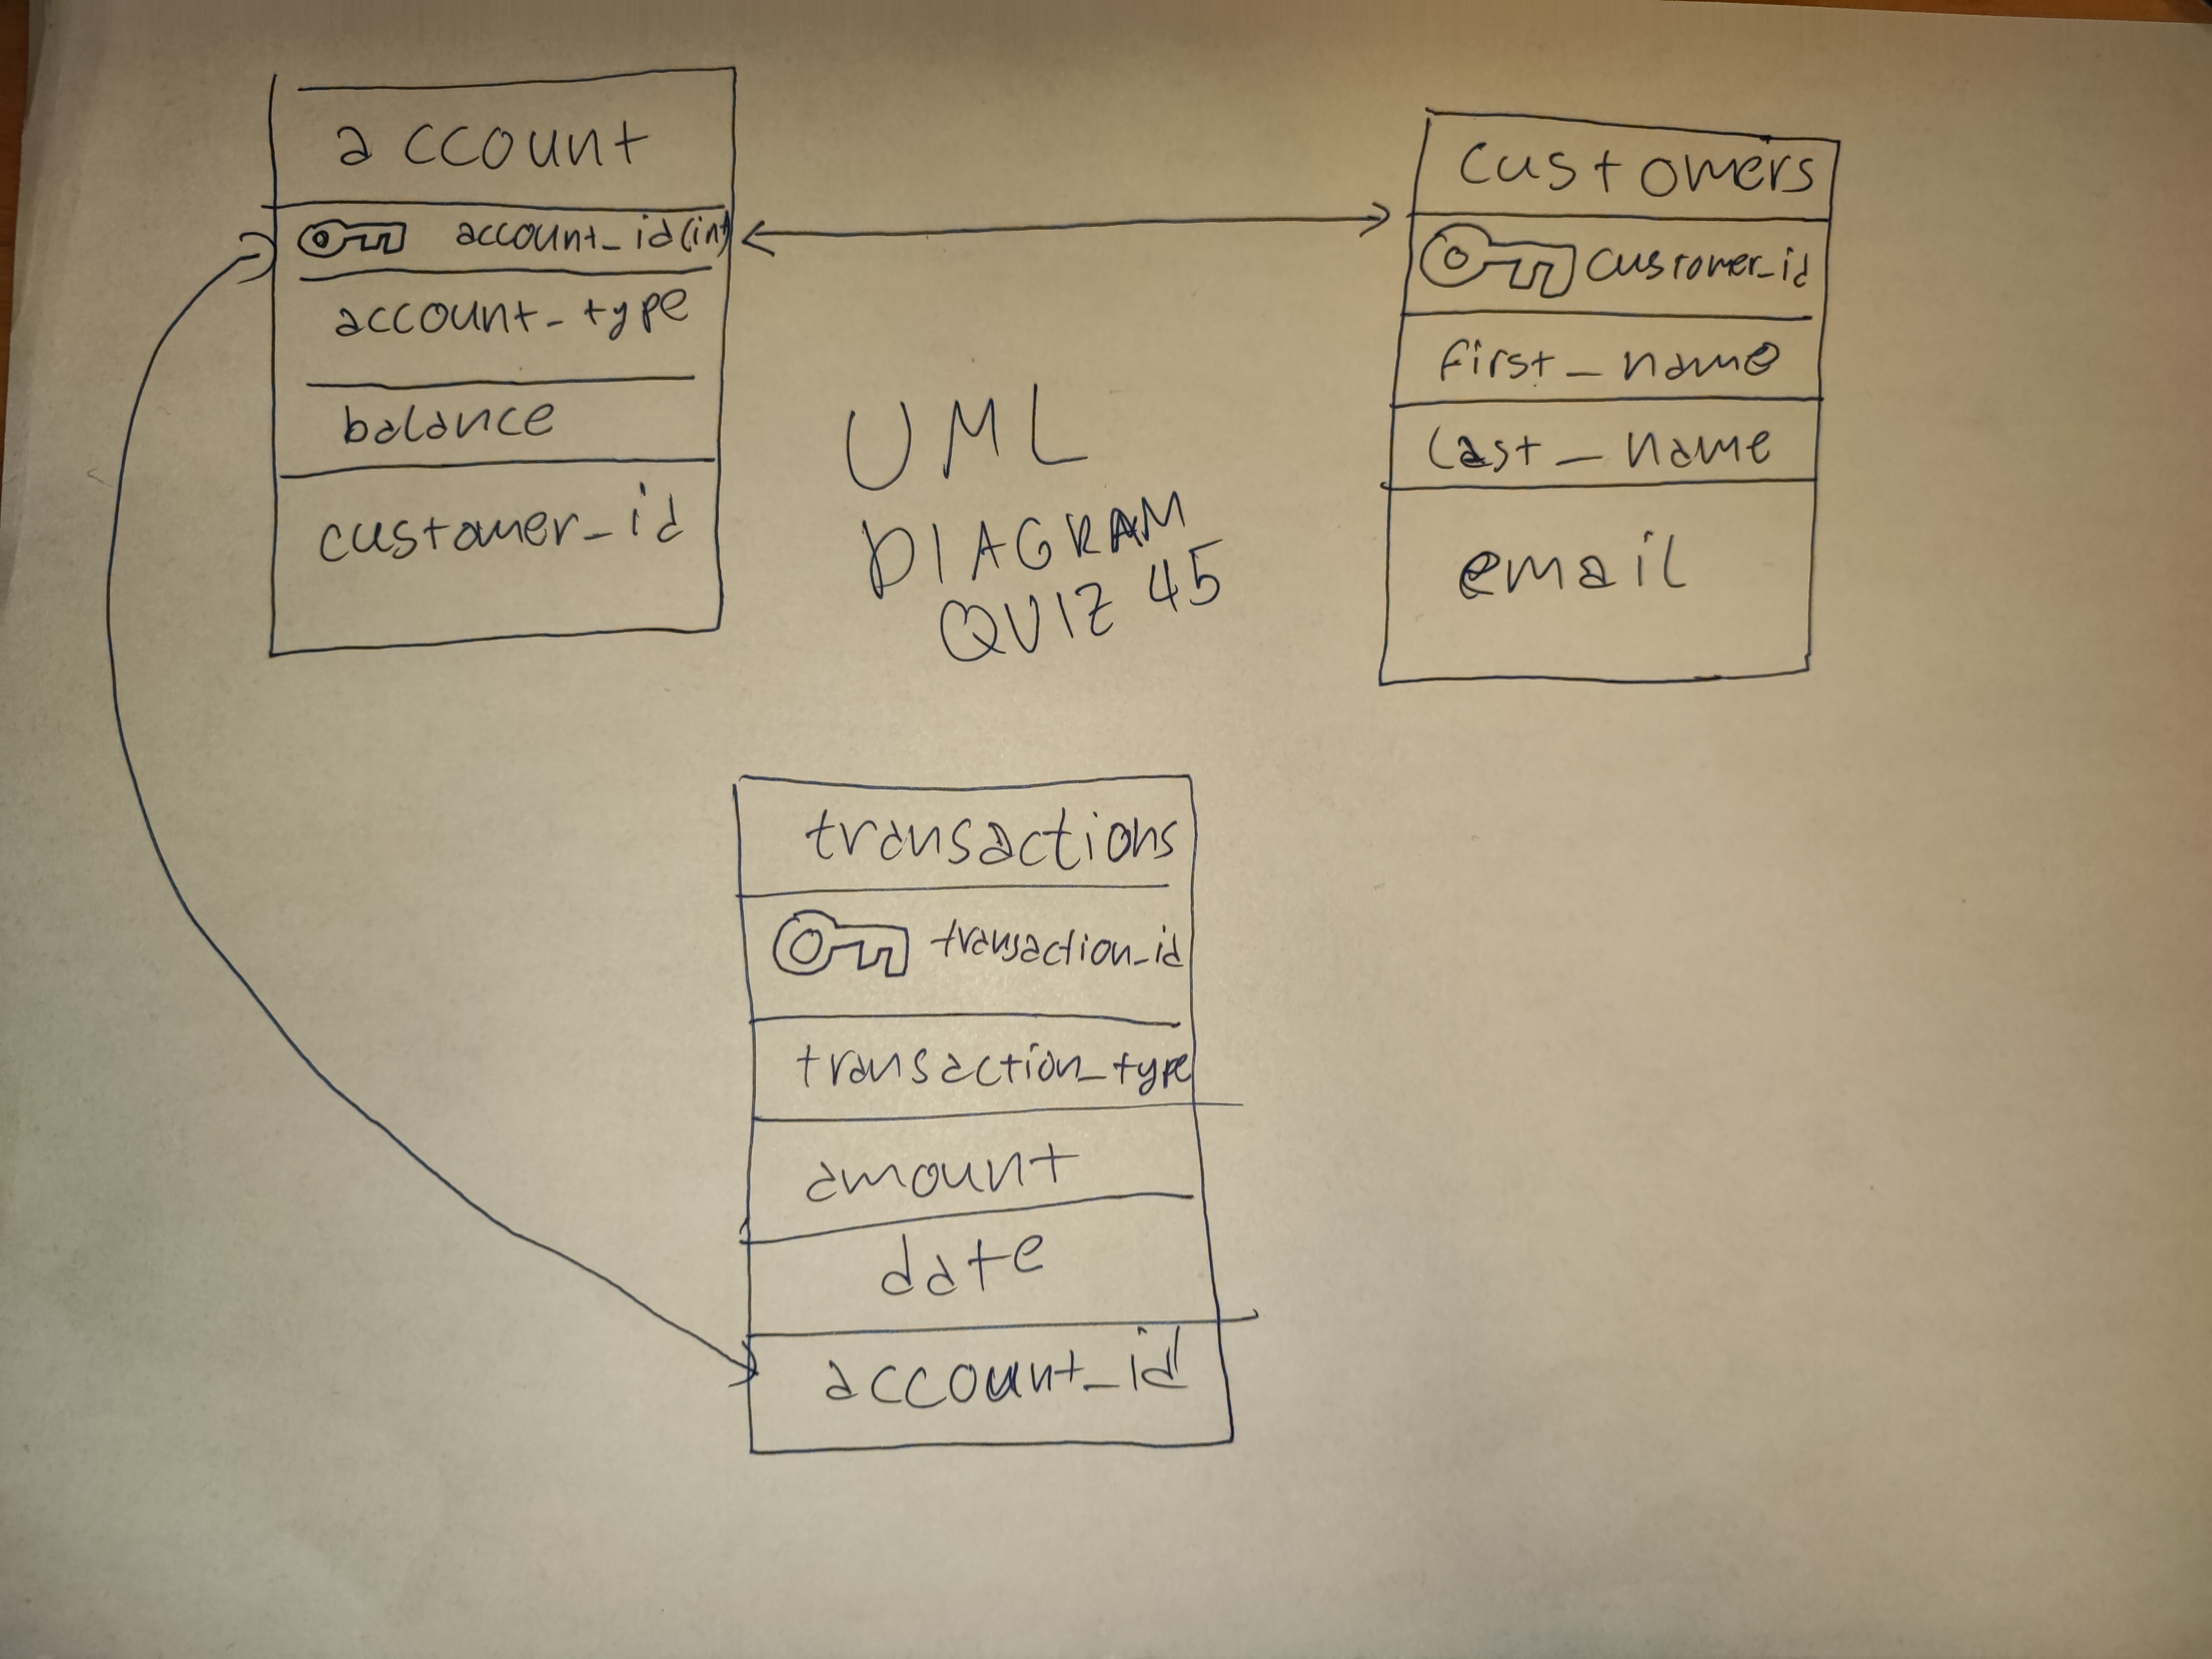 account
account_id(int)
account_type
balance
customer_id
customers
customer_id
first_name
last_name
email
UML
DIAGRAM
QUIZ 45
transactions
transaction_id
transaction_type
amount
date
account_id